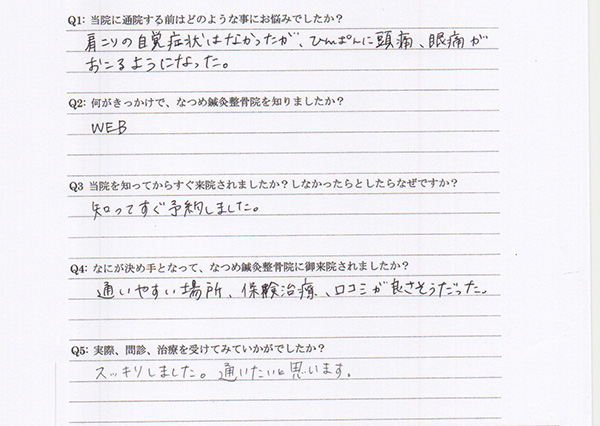 Q1: 当院に通院する前はどのような事にお悩みでしたか？
肩こりの自覚症状はなかったが、ひんぱんに頭痛、眼痛が
おこるようになった。
Q2: 何がきっかけで、なつめ鍼灸整骨院を知りましたか？
WEB
Q3 当院を知ってからすぐ来院されましたか？しなかったらとしたらなぜですか？
知ってすぐ予約しました。
Q4: なにが決め手となって、なつめ鍼灸整骨院に御来院されましたか？
通いやすい場所、保険治療、口コミが良さそうだった。
Q5: 実際、問診、治療を受けてみていかがでしたか？
スッキリしました。通いたいと思います。